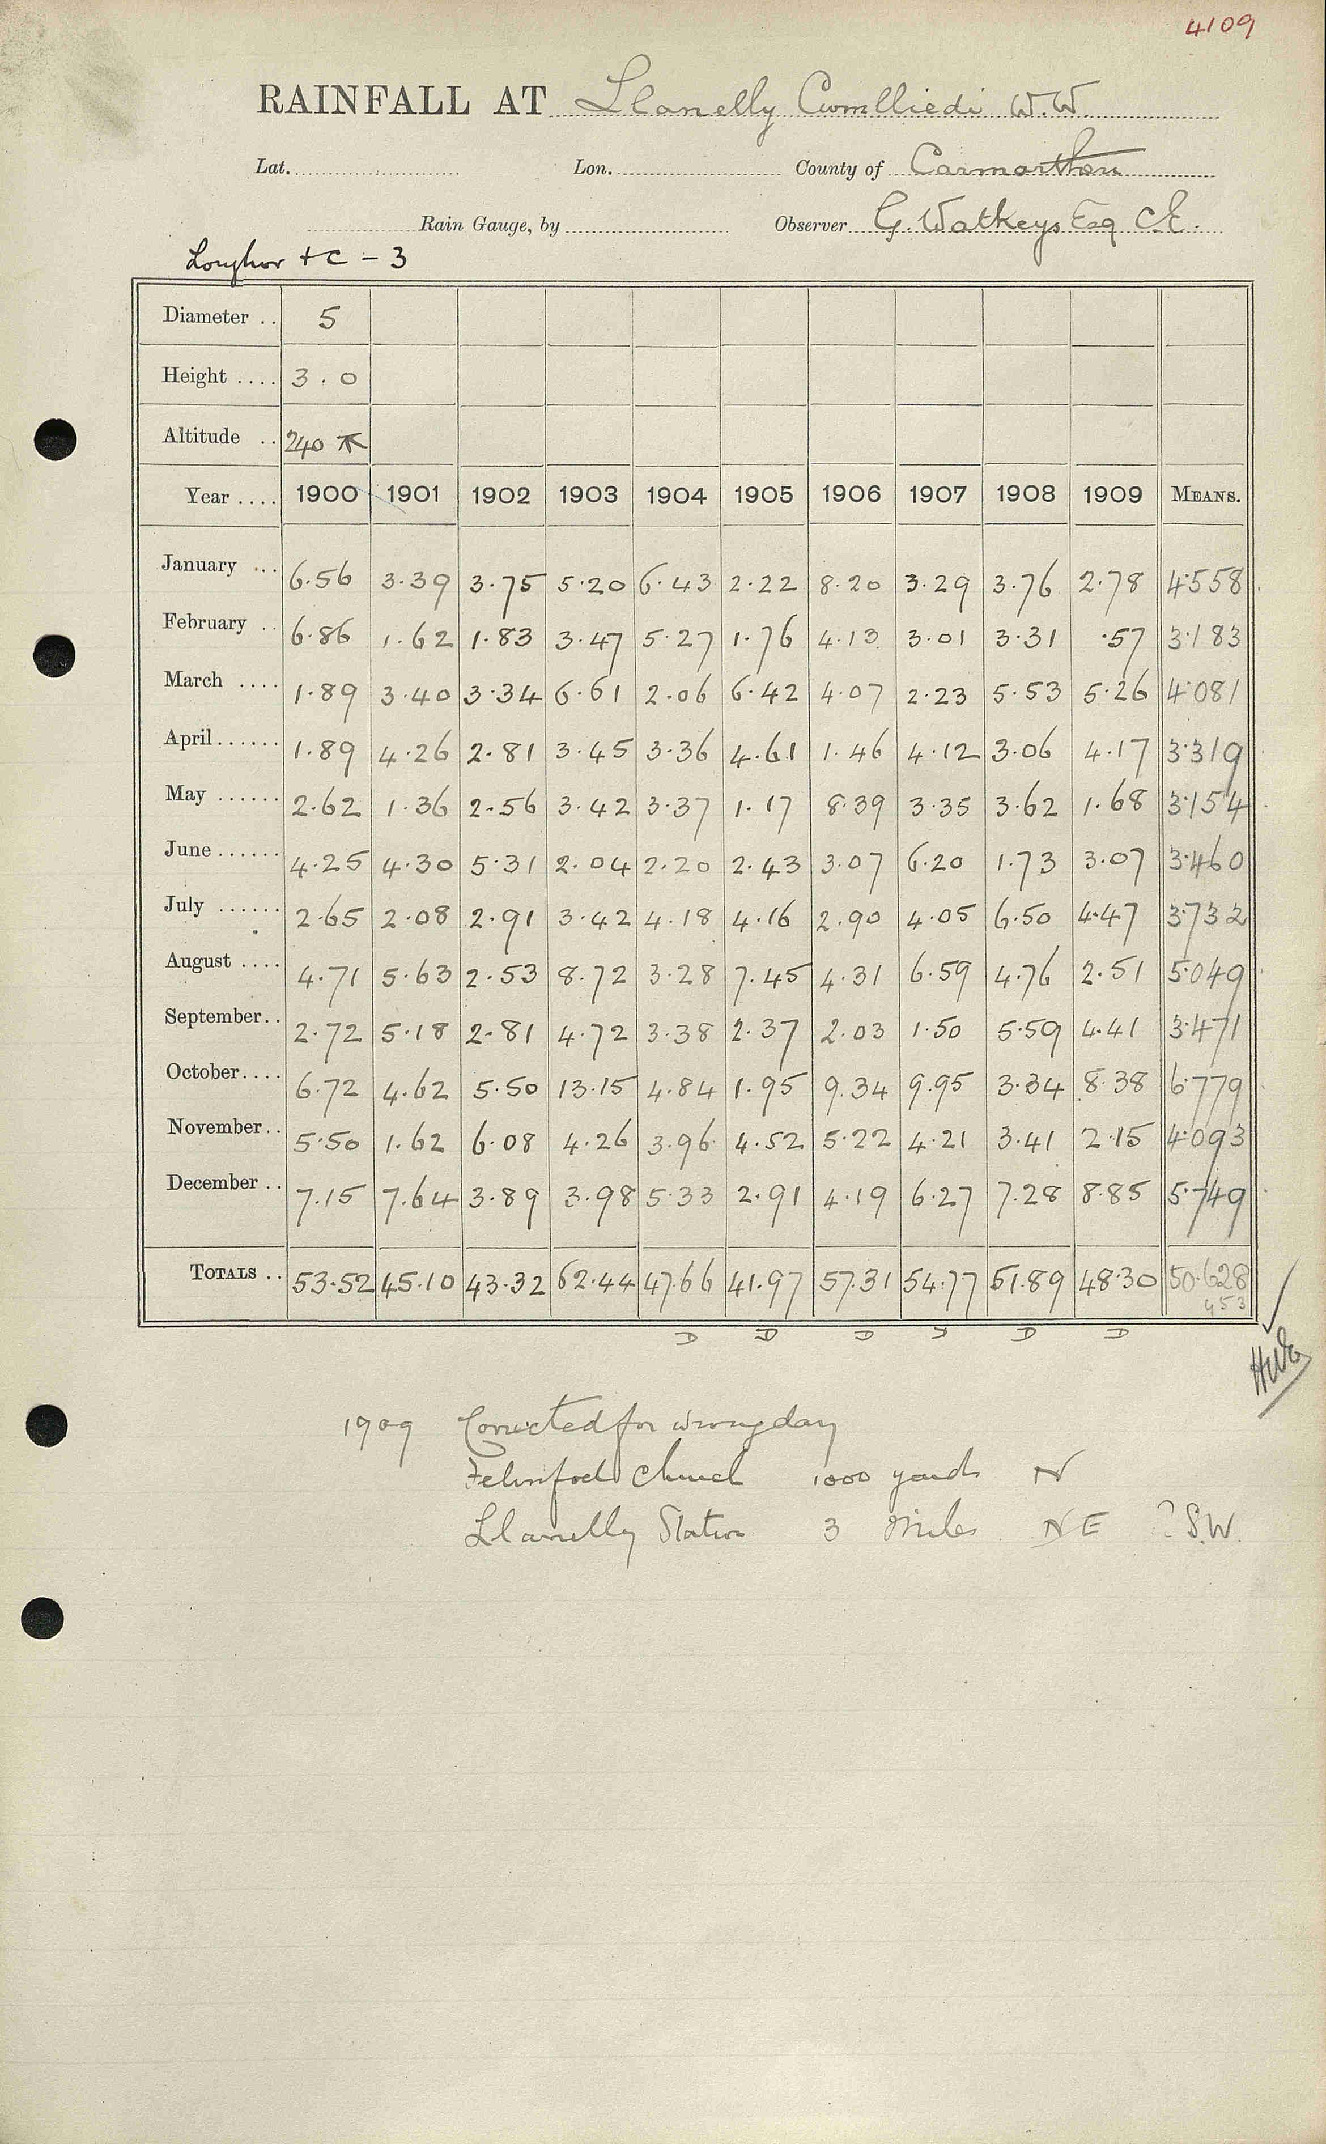 4109
RAINFALL AT Llanelly Cwmlliedi W.W.
Lat. Lon. County of Carmarthen
Rain Gauge, by Observer G. Watkeys Esq C.E.
Loughor + C - 3
Diameter .. 5
Height .... 3.0
Altitude .. 240
Year .... 1900 1901 1902 1903 1904 1905 1906 1907 1908 1909 MEANS.
January ... 6.56 3.39 3.75 5.20 6.43 2.22 8.20 3.29 3.76 2.78 4.558
February .. 6.86 1.62 1.83 3.47 5.27 1.76 4.13 3.01 3.31 .57 3.183
March .... 1.89 3.40 3.34 6.61 2.06 6.42 4.07 2.23 5.53 5.26 4.081
April...... 1.89 4.26 2.81 3.45 3.36 4.61 1.46 4.12 3.06 4.17 3.319
May ...... 2.62 1.36 2.56 3.42 3.37 1.17 8.39 3.35 3.62 1.68 3.154
June...... 4.25 4.30 5.31 2.04 2.20 2.43 3.07 6.20 1.73 3.07 3.460
July ...... 2.65 2.08 2.91 3.42 4.18 4.16 2.90 4.05 6.50 4.47 3.732
August .... 4.71 5.63 2.53 8.72 3.28 7.45 4.31 6.59 4.76 2.51 5.049
September.. 2.72 5.18 2.81 4.72 3.38 2.37 2.03 1.50 5.59 4.41 3.471
October.... 6.72 4.62 5.50 13.15 4.84 1.95 9.34 9.95 3.34 8.38 6.779
November.. 5.50 1.62 6.08 4.26 3.96 4.52 5.22 4.21 3.41 2.15 4.093
December .. 7.15 7.64 3.89 3.98 5.33 2.91 4.19 6.27 7.28 8.85 5.749
TOTALS .. 53.52 45.10 43.32 62.44 47.66 41.97 57.31 54.77 51.89 48.30 50.628
D D D D D
1909 Corrected for wrong day
Felinfoel Church 1000 yards N
Llanelly Station 3 Miles NE ? S.W.